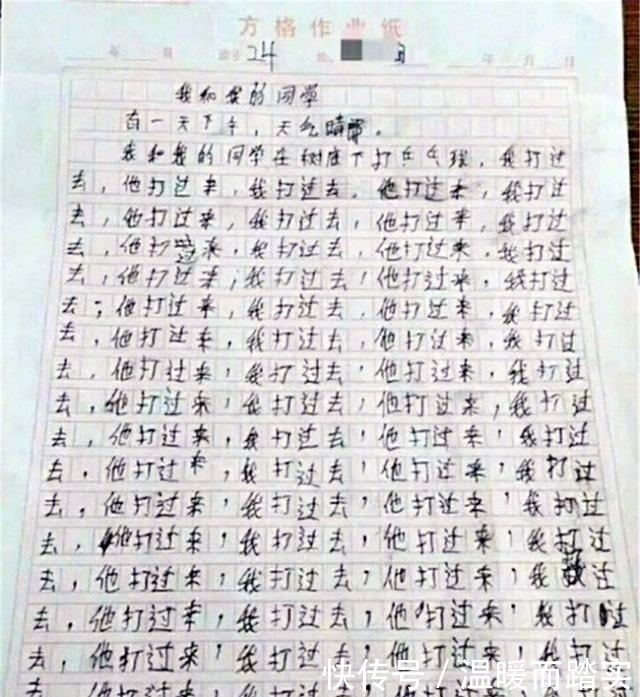 方格作业纸
年 月 24 年 月 日
我和我的同学
有一天下午，天气晴。
我和我的同学在树底下打乒乓球，我打过
去，他打过来，我打过去，他打过来，我打过
去，他打过来，我打过去，他打过来，我打过
去，他打过来，我打过去，他打过来，我打过
去，他打过来，我打过去，他打过来，我打过
去，他打过来，我打过去，他打过来，我打过
去，他打过来，我打过去，他打过来，我打过
去，他打过来，我打过去，他打过来，我打过
去，他打过来，我打过去，他打过来，我打过
去，他打过来，我打过去，他打过来，我打过
去，他打过来，我打过去，他打过来，我打过
去，他打过来，我打过去，他打过来，我打过
去，他打过来，我打过去，他打过来，我打过
去，他打过来，我打过去，他打过来，我过
去，他打过来，我打过去，他打过来，我打过
去，他打过来，我打过去
快传号 / 温暖而踏实